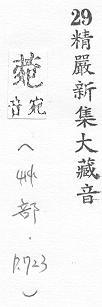 29 精嚴新集大藏音
菀 宛音
（艸部．p.723）